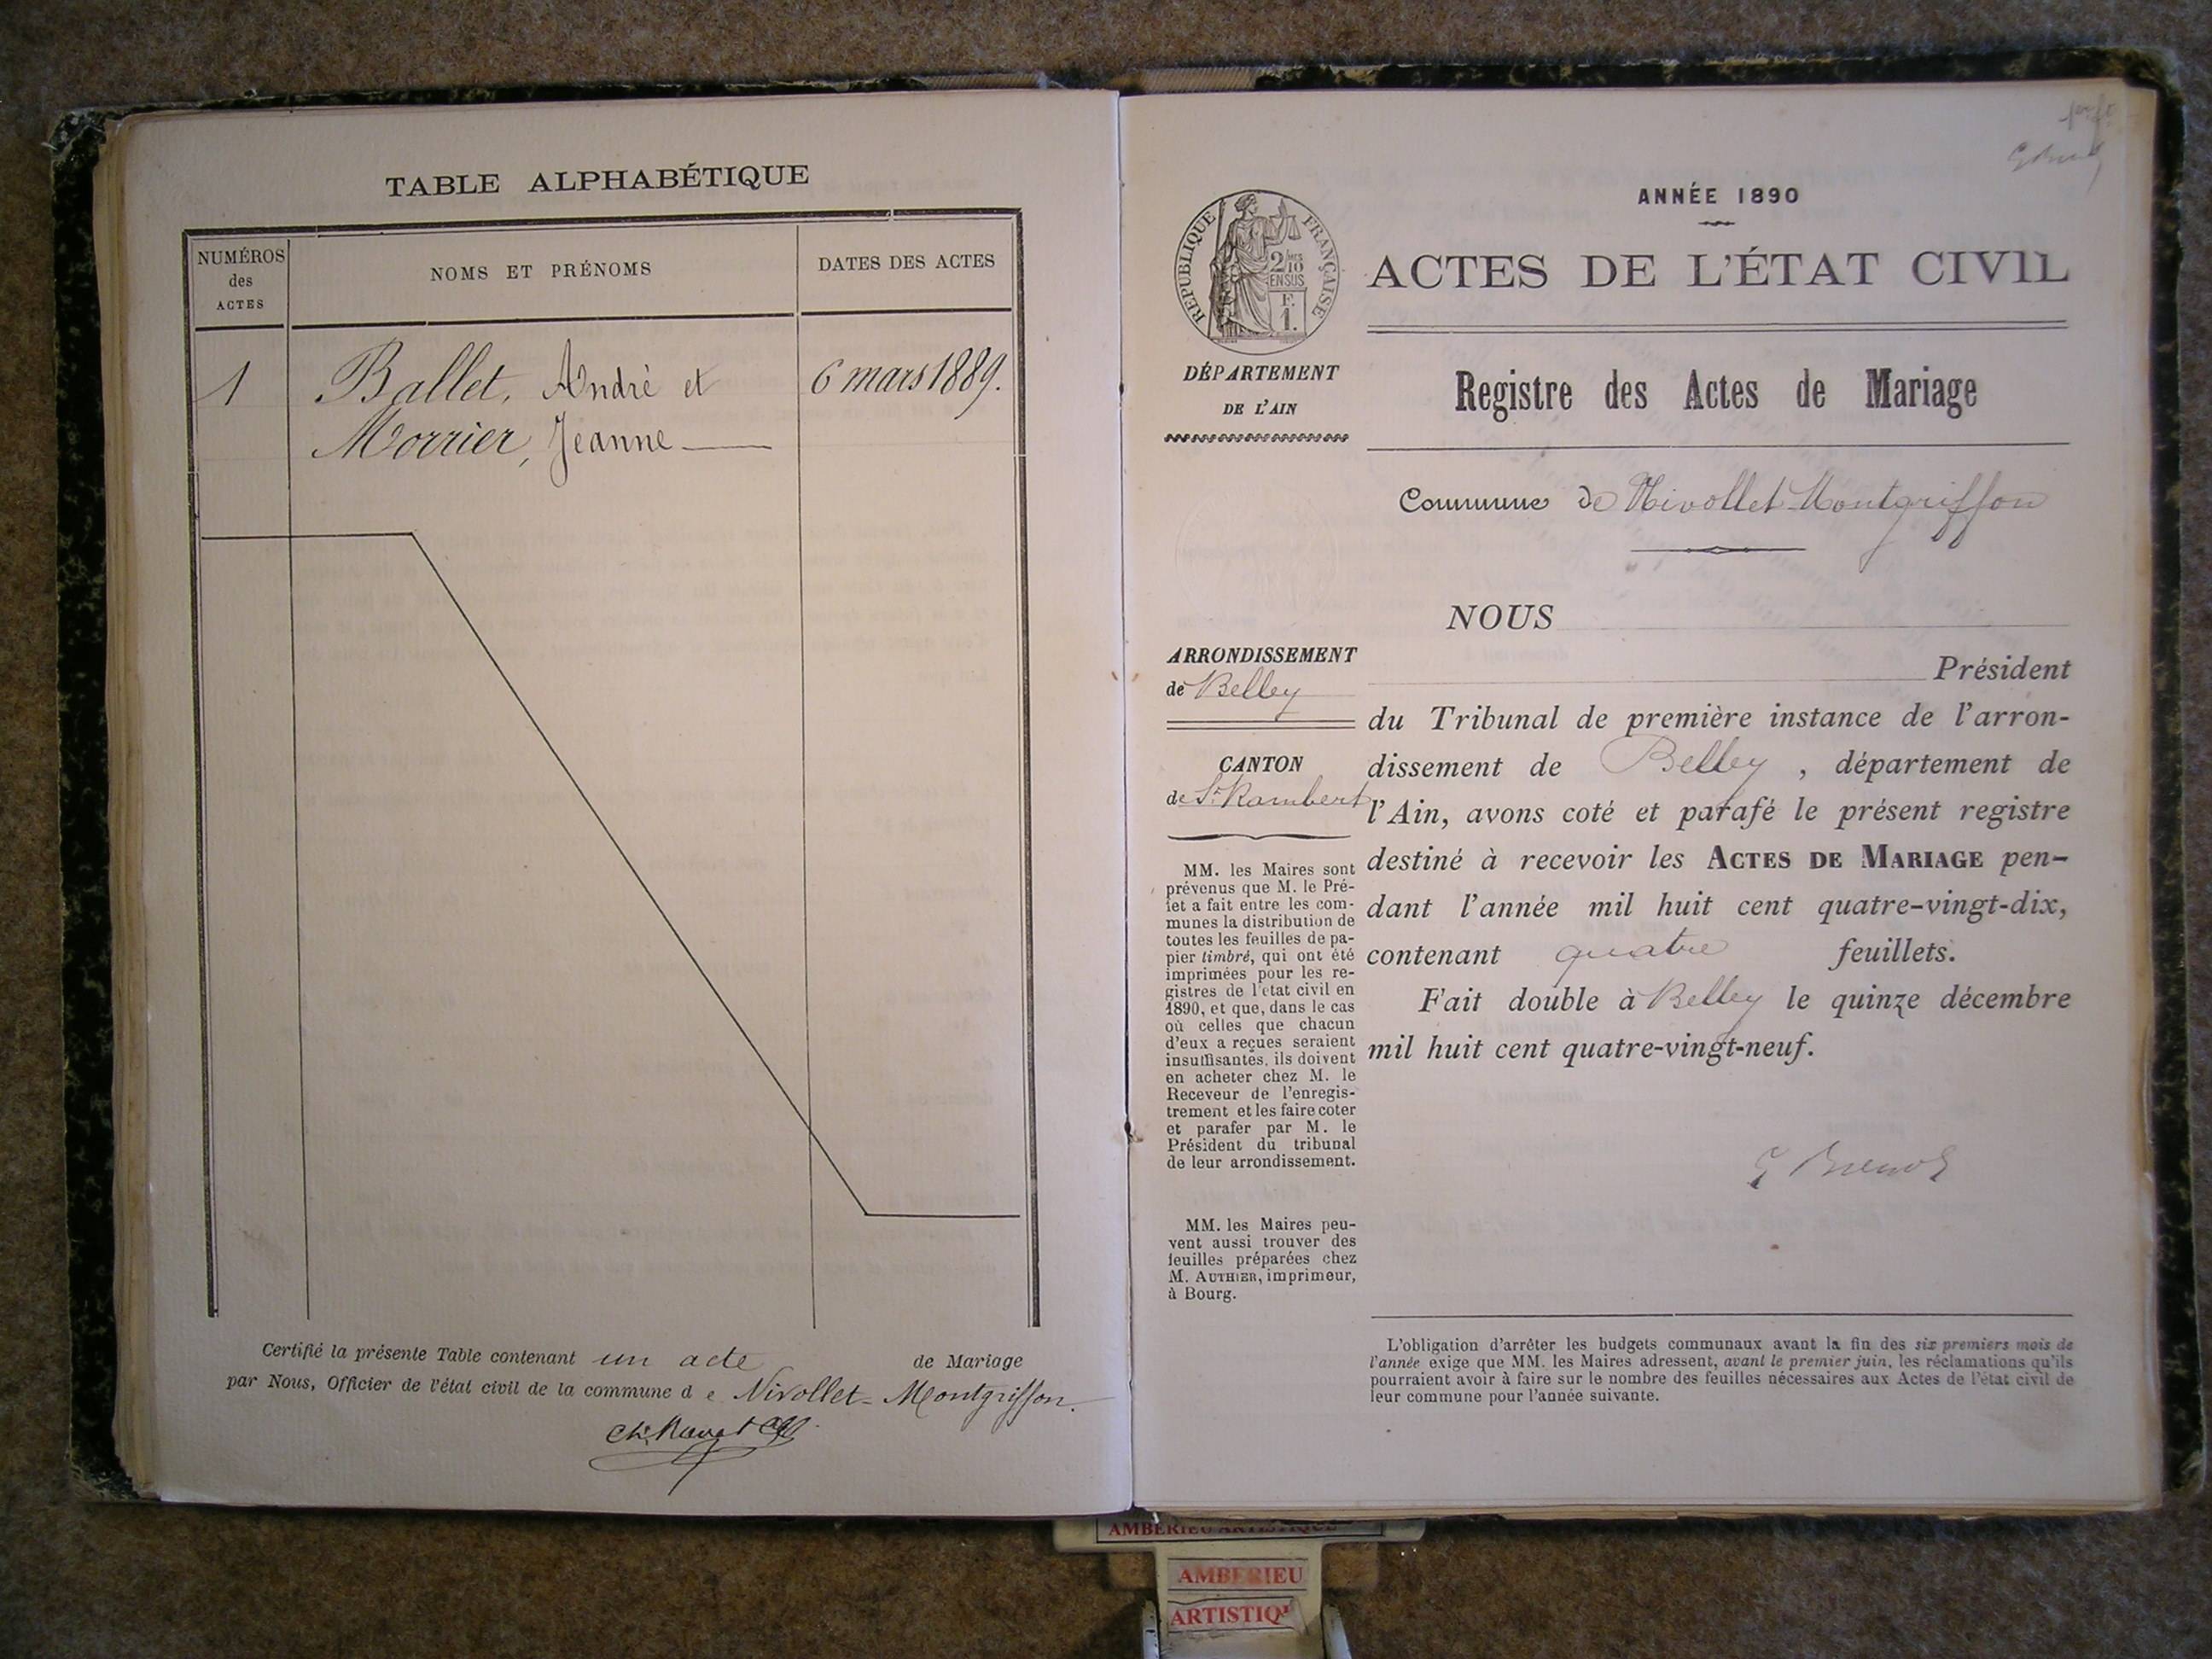 TABLE ALPHABÉTIQUE
NUMÉROS
des
ACTES
NOMS ET PRÉNOMS
DATES DES ACTES
1 Ballet, André et 6 mars 1889.
Morrier, Jeanne
Certifié la présente Table contenant un acte de Mariage
par Nous, Officier de l'état civil de la commune d e Nivollet-Montgriffon.
ANNÉE 1890
RÉPUBLIQUE FRANÇAISE
2/10
EN SUS
F.
1.
ACTES DE L'ÉTAT CIVIL
DÉPARTEMENT
DE L'AIN
Registre des Actes de Mariage
Commune de Nivollet-Montgriffon
NOUS
ARRONDISSEMENT
de Belley
CANTON
de St. Rambert
MM. les Maires sont
prévenus que M. le Pré-
fet a fait entre les com-
munes la distribution de
toutes les feuilles de pa-
pier timbré, qui ont été
imprimées pour les re-
gistres de l'état civil en
1890, et que, dans le cas
où celles que chacun
d'eux a reçues seraient
insuffisantes, ils doivent
en acheter chez M. le
Receveur de l'enregis-
trement et les faire coter
et parafer par M. le
Président du tribunal
de leur arrondissement.
MM. les Maires peu-
vent aussi trouver des
feuilles préparées chez
M. AUTHIER, imprimeur,
à Bourg.
Président
du Tribunal de première instance de l'arron-
dissement de Belley , département de
l'Ain, avons coté et parafé le présent registre
destiné à recevoir les ACTES DE MARIAGE pen-
dant l'année mil huit cent quatre-vingt-dix,
contenant quatre feuillets.
Fait double à Belley le quinze décembre
mil huit cent quatre-vingt-neuf.
L'obligation d'arrêter les budgets communaux avant la fin des six premiers mois de
l'année exige que MM. les Maires adressent, avant le premier juin, les réclamations qu'ils
pourraient avoir à faire sur le nombre des feuilles nécessaires aux Actes de l'état civil de
leur commune pour l'année suivante.
AMBERIEU ARTISTIQUE
AMBERIEU
ARTISTIQU